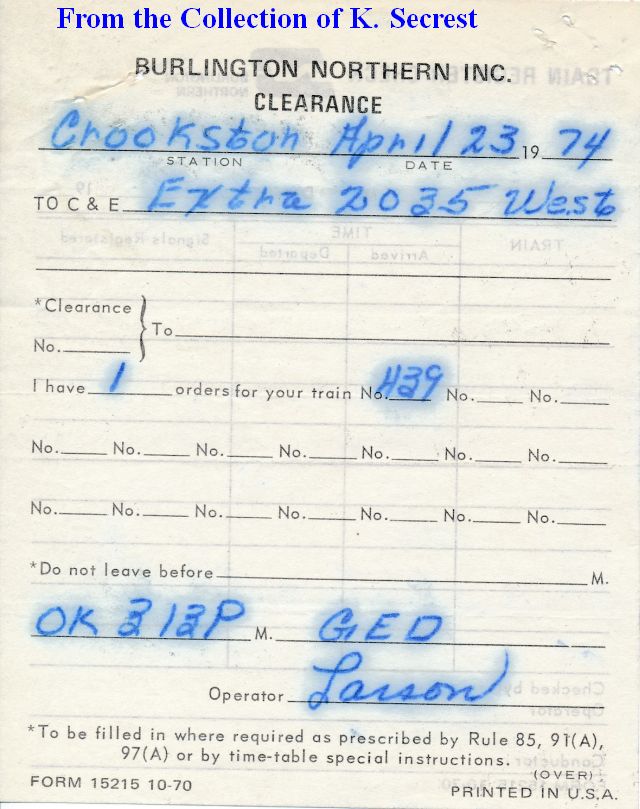 From the Collection of K. Secrest
BURLINGTON NORTHERN INC.
CLEARANCE
Crookston April 23 19 74
STATION DATE
TO C & E Extra 2035 West
*Clearance
No. } To
I have 1 orders for your train No. H39 No. No.
No. No. No. No. No. No. No.
No. No. No. No. No. No. No.
*Do not leave before M.
OK 313P M. GED
Operator Larson
*To be filled in where required as prescribed by Rule 85, 91(A),
97(A) or by time-table special instructions.
(OVER)
FORM 15215 10-70 PRINTED IN U.S.A.